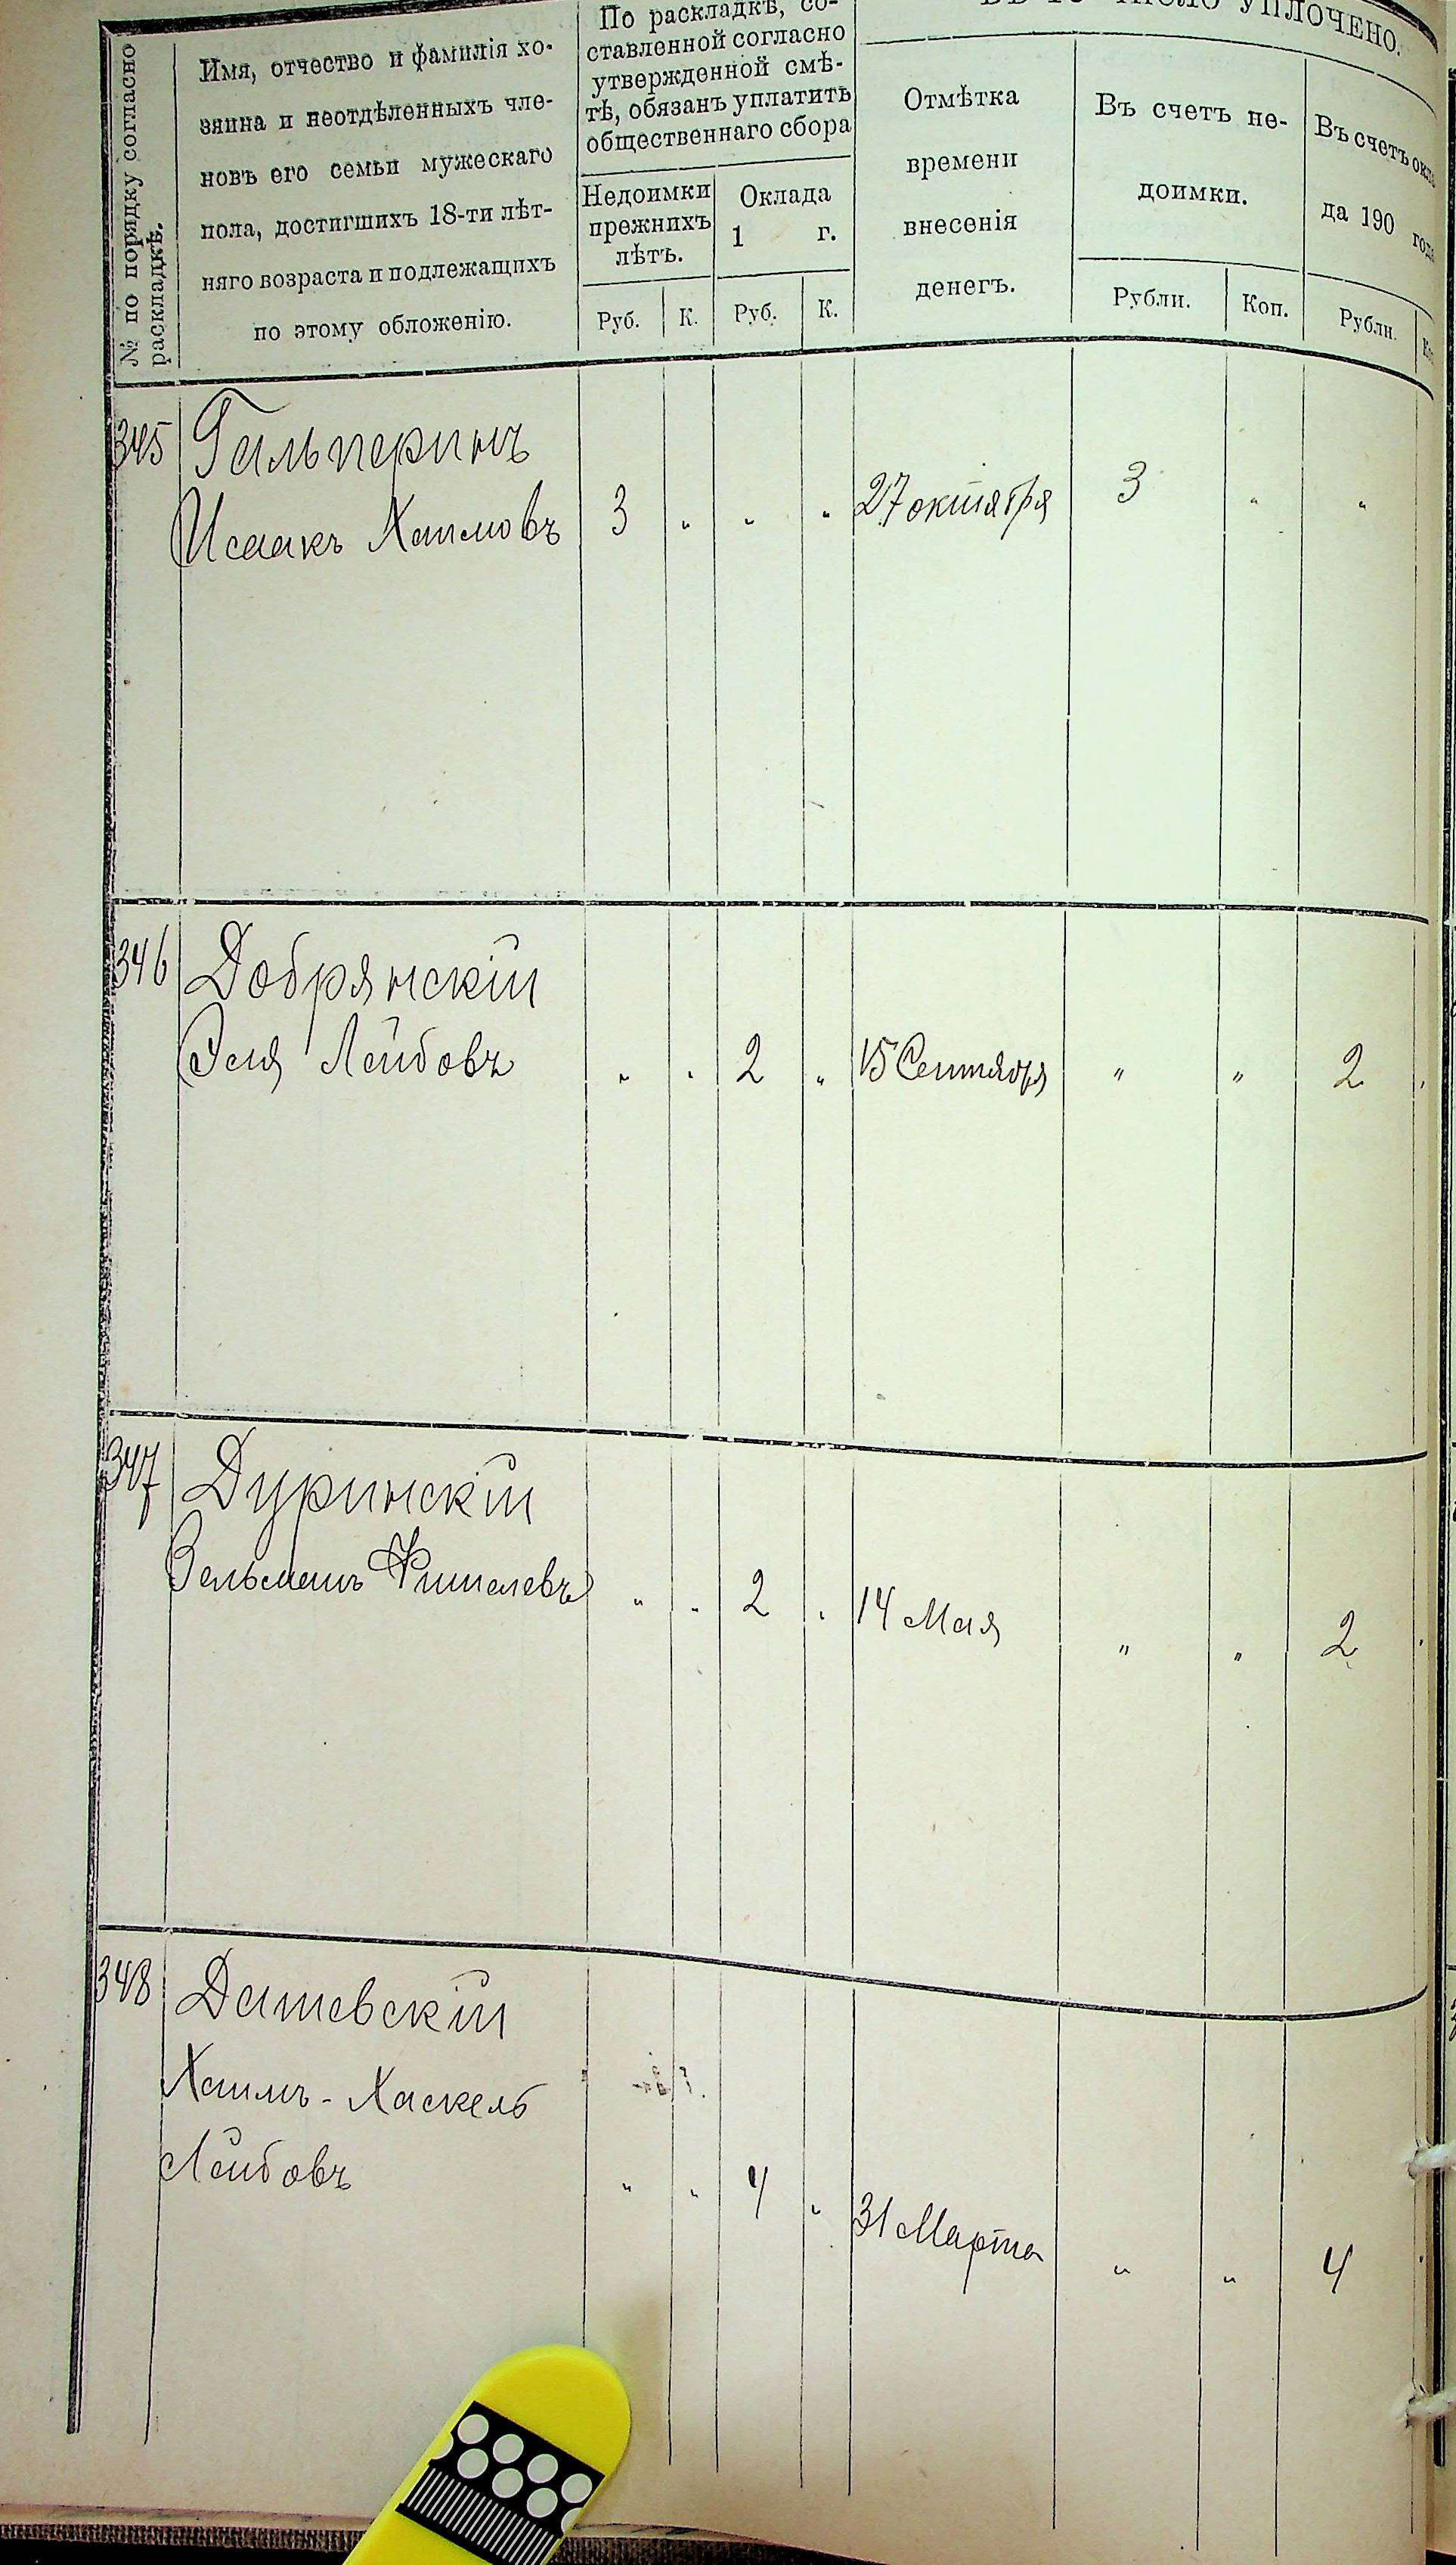 № по порядку согласно
раскладкѣ.
Имя, отчество и фамилія хо-
зяина и неотдѣленныхъ чле-
новъ его семьи мужескаго
пола, достигшихъ 18-ти лѣт-
няго возраста и подлежащихъ
по этому обложенію.
По раскладкѣ, со-
ставленной согласно
утвержденной смѣ-
тѣ, обязанъ уплатить
общественнаго сбора
Недоимки
прежнихъ
лѣтъ.
Оклада
1 г.
Руб. К. Руб. К.
ВЪ ТО ЧИСЛО УПЛОЧЕНО.
Отмѣтка
времени
внесенія
денегъ.
Въ счетъ не-
доимки.
Рубли. Коп.
Въ счетъ окла-
да 190 года
Рубли. Коп
345 Гальперинъ
Исаакъ Хаимовъ 3 " " " 27 октября 3 " "
346 Добрянскій
Эля Лейбовъ " " 2 " 15 Сентября " " 2
347 Дуринскій
Зельманъ Фишелевъ " " 2 " 14 Мая " " 2
348 Дашевскій
Хаимъ-Хаскель
Лейбовъ " " 4 " 31 Марта " " 4